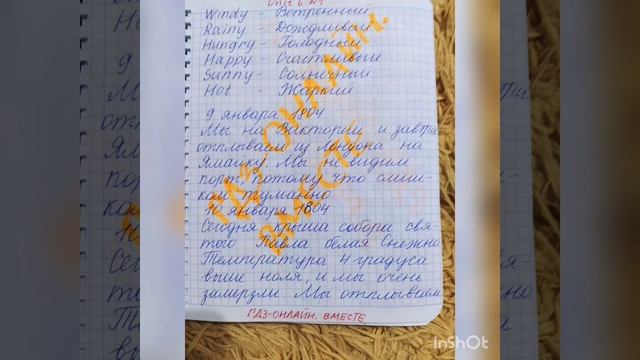 Unit 6 №4
Windy - Ветренный
Rainy - Дождливый
Hungry - Голодный
Happy - Счастливый
Sunny - Солнечный
Hot - Жаркий
9 января 1804
Мы на Виктории и завтра
отплываем из Лондона на
Ямайку. Мы не видим
порт, потому что слиш-
ком туманно.
10 января 1804
Сегодня крыша собора свя-
того Павла белая. Снежно.
Температура 4 градуса
выше ноля, и мы очень
замерзли. Мы отплываем
ГДЗ-ОНЛАЙН. ВМЕСТЕ.
ГДЗ-ОНЛАЙН.
ВМЕСТЕ
InShOt